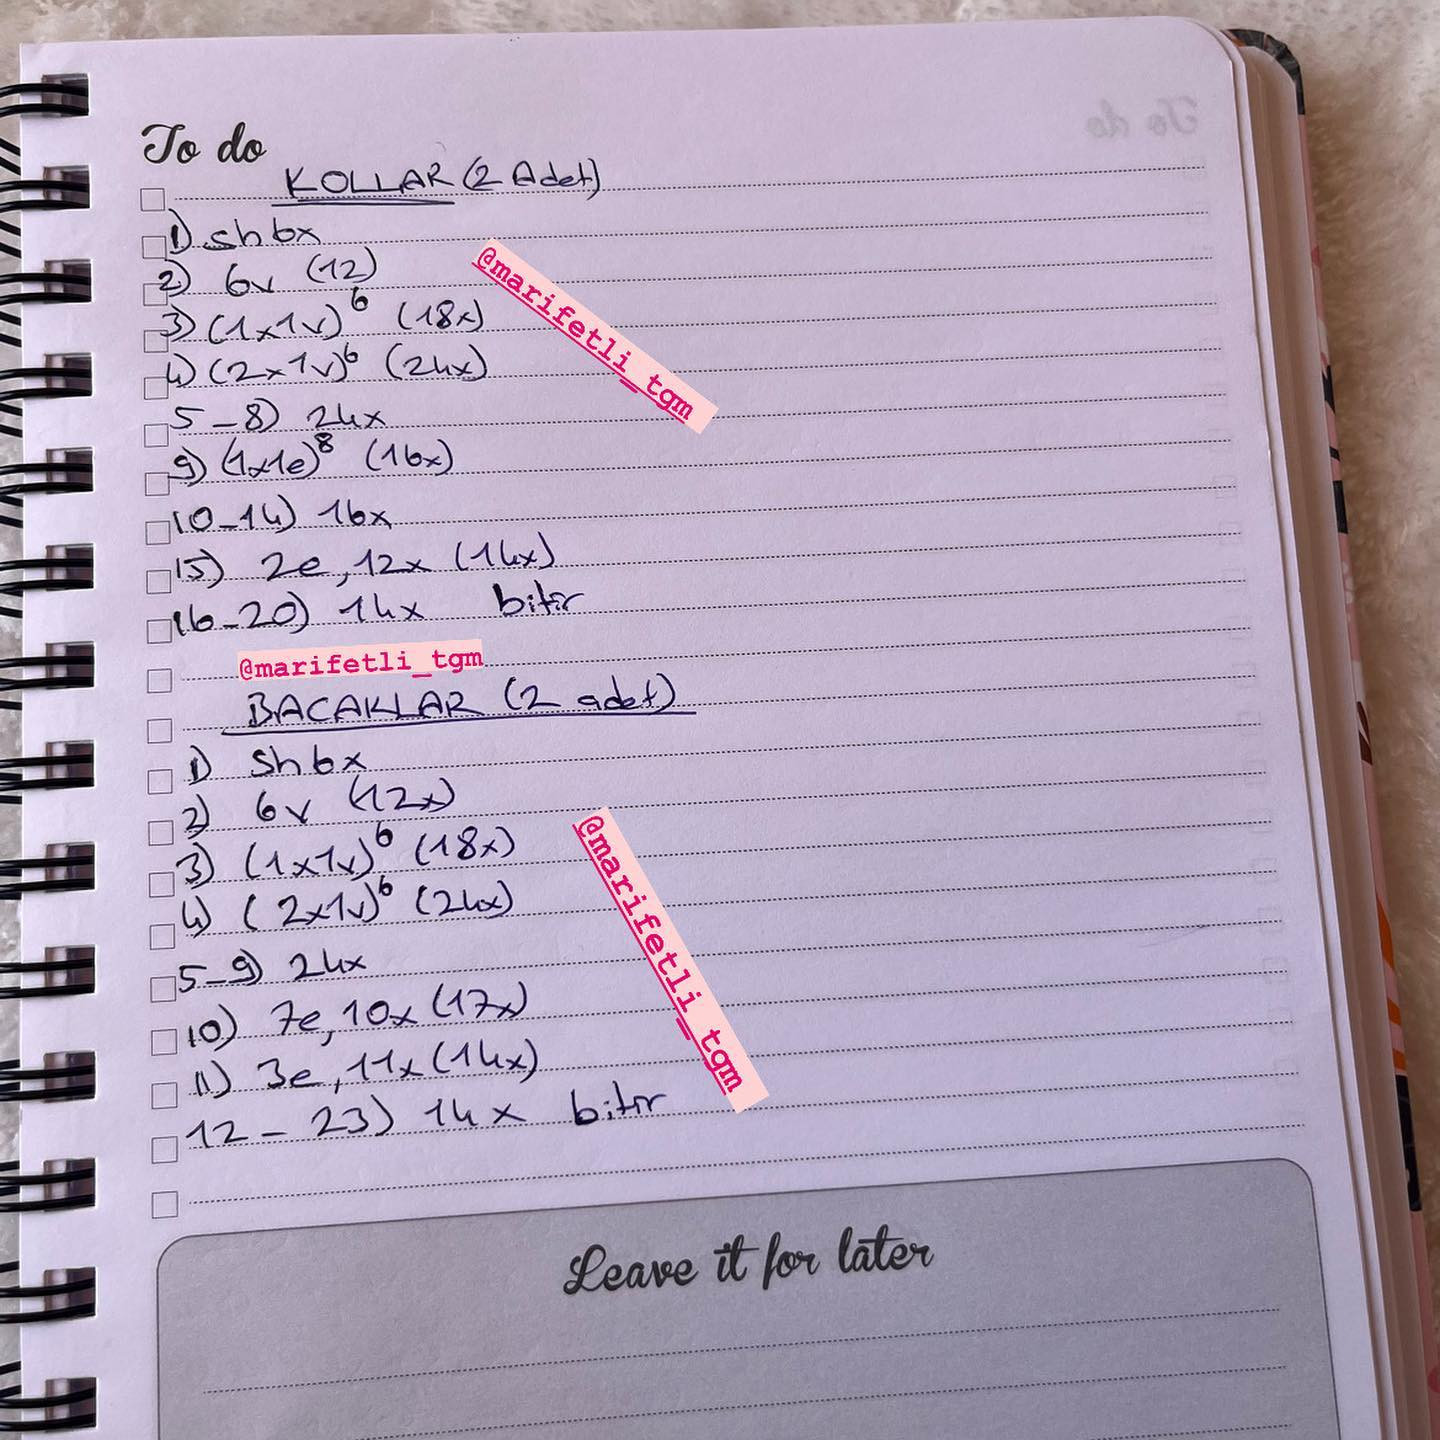 To do
KOLLAR (2 Adet)
1) sh 6x
2) 6v (12)
3) (1x1v)⁶ (18x)
4) (2x1v)⁶ (24x)
5-8) 24x
9) (1x1e)⁸ (16x)
10-14) 16x
15) 2e, 12x (14x)
16-20) 14x bitir
@marifetli_tgm
@marifetli_tgm
BACAKLAR (2 adet)
1) sh 6x
2) 6v (12x)
3) (1x1v)⁶ (18x)
4) (2x1v)⁶ (24x)
5-9) 24x
10) 7e, 10x (17x)
11) 3e, 11x (14x)
12-23) 14x bitir
@marifetli_tgm
Leave it for later